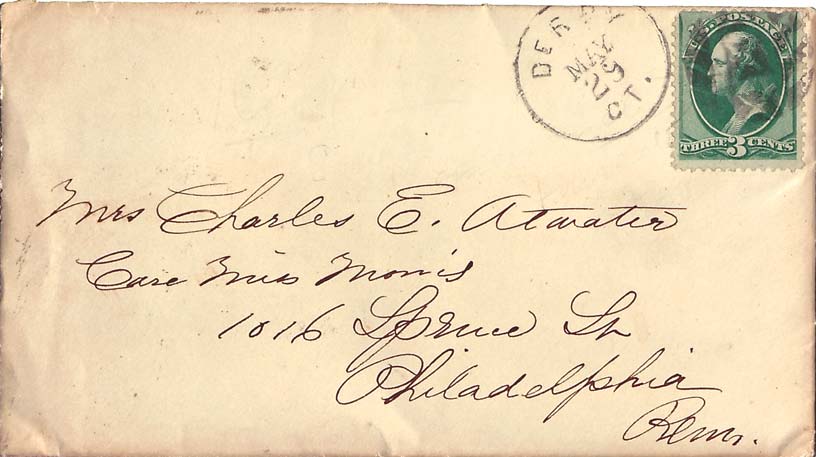 DERBY
MAY
29
CT.
U.S. POSTAGE
THREE 3 CENTS
Mrs Charles E. Atwater
Care Miss Morris
1016 Spruce St
Philadelphia
Penn.